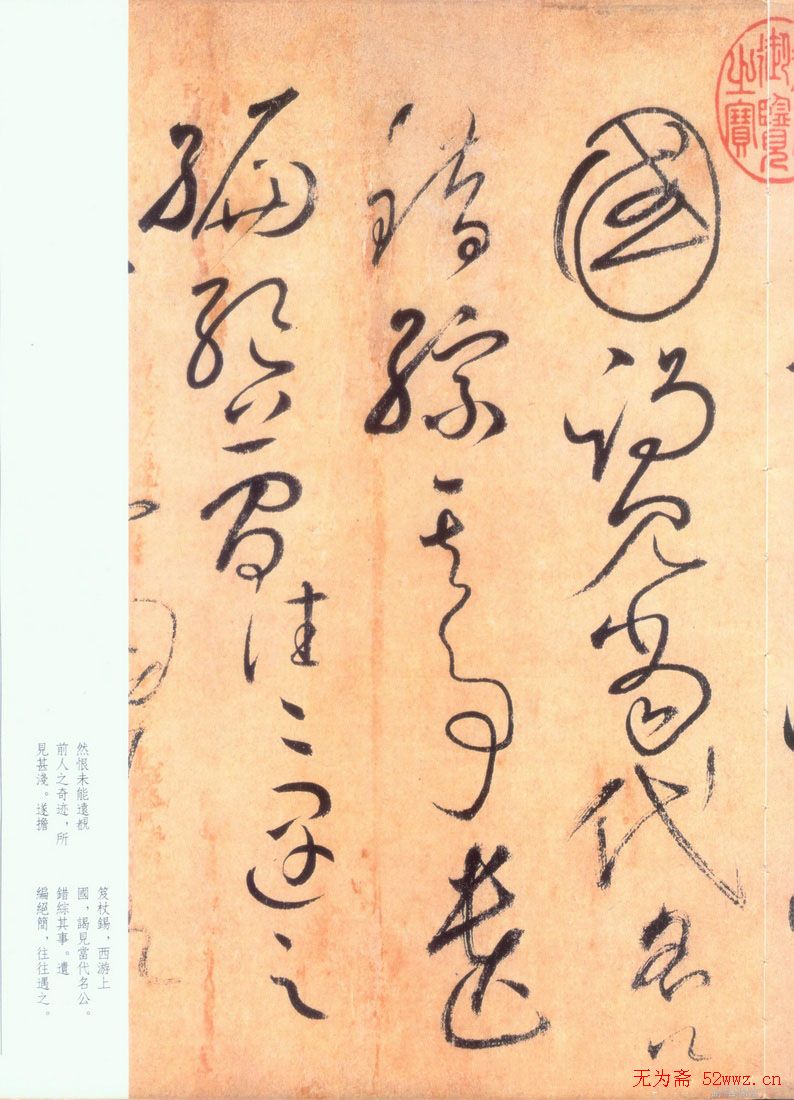 御覽之寶
國謁見當代名公
錯綜其事遺
編絕簡往往遇之
然恨未能遠覩
前人之奇迹，所
見甚淺。遂擔
笈杖錫，西游上
國，謁見當代名公。
錯綜其事。遺
編絕簡，往往遇之。
无为斋 52wwz.cn